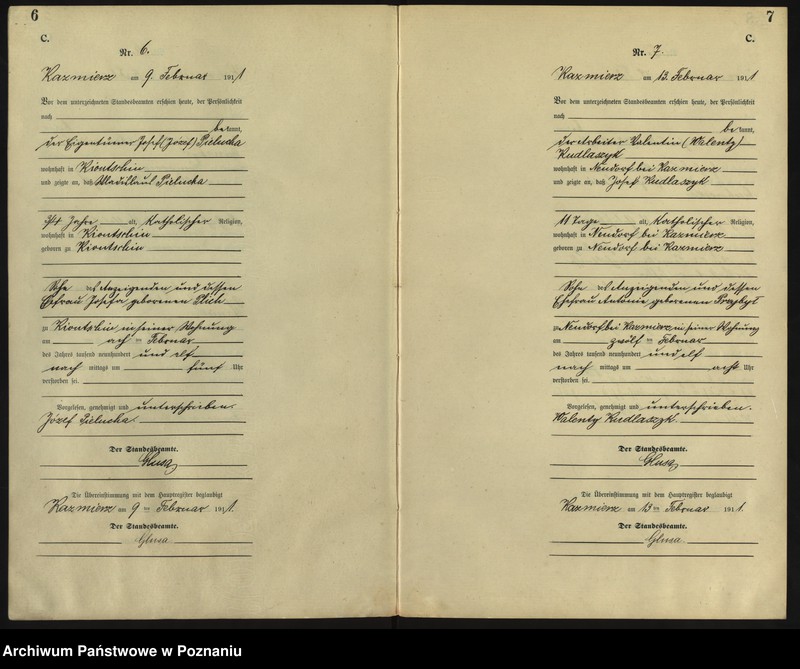 6
C.
Nr. 6.
Kazmierz am 9. Februar 1911
Vor dem unterzeichneten Standesbeamten erschien heute, der Persönlichkeit
nach
bekannt,
der Eigentümer Josef (Józef) Pielucha
wohnhaft in Kiontschin
und zeigte an, daß Wladislaus Pielucha
3/4 Jahre alt, katholischer Religion,
wohnhaft in Kiontschin
geboren zu Kiontschin
Sohn des Anzeigenden und dessen
Ehefrau Josefa geborenen
zu Kiontschin in seiner Wohnung
am acht ten Februar
des Jahres tausend neunhundert und elf
nach mittags um fünf Uhr
verstorben sei.
Vorgelesen, genehmigt und unterschrieben.
Józef Pielucha.
Der Standesbeamte.
Die Übereinstimmung mit dem Hauptregister beglaubigt
Kazmierz am 9 ten Februar 1911.
Der Standesbeamte.
7
C.
Nr. 7.
Kazmierz am 13. Februar 1911
Vor dem unterzeichneten Standesbeamten erschien heute, der Persönlichkeit
nach
bekannt,
der Arbeiter Valentin (Walenty)
Kudlaszyk
wohnhaft in Neudorf bei Kazmierz
und zeigte an, daß Józef Kudlaszyk
11 Tage alt, katholischer Religion,
wohnhaft in Neudorf bei Kazmierz
geboren zu Neudorf bei Kazmierz
Sohn des Anzeigenden und dessen
Ehefrau Antonie geborenen Przybył
zu Neudorf bei Kazmierz in seiner Wohnung
am zwölf ten Februar
des Jahres tausend neunhundert und elf
nach mittags um acht Uhr
verstorben sei.
Vorgelesen, genehmigt und unterschrieben.
Walenty Kudlaszyk.
Der Standesbeamte.
Die Übereinstimmung mit dem Hauptregister beglaubigt
Kazmierz am 13 ten Februar 1911.
Der Standesbeamte.
Archiwum Państwowe w Poznaniu